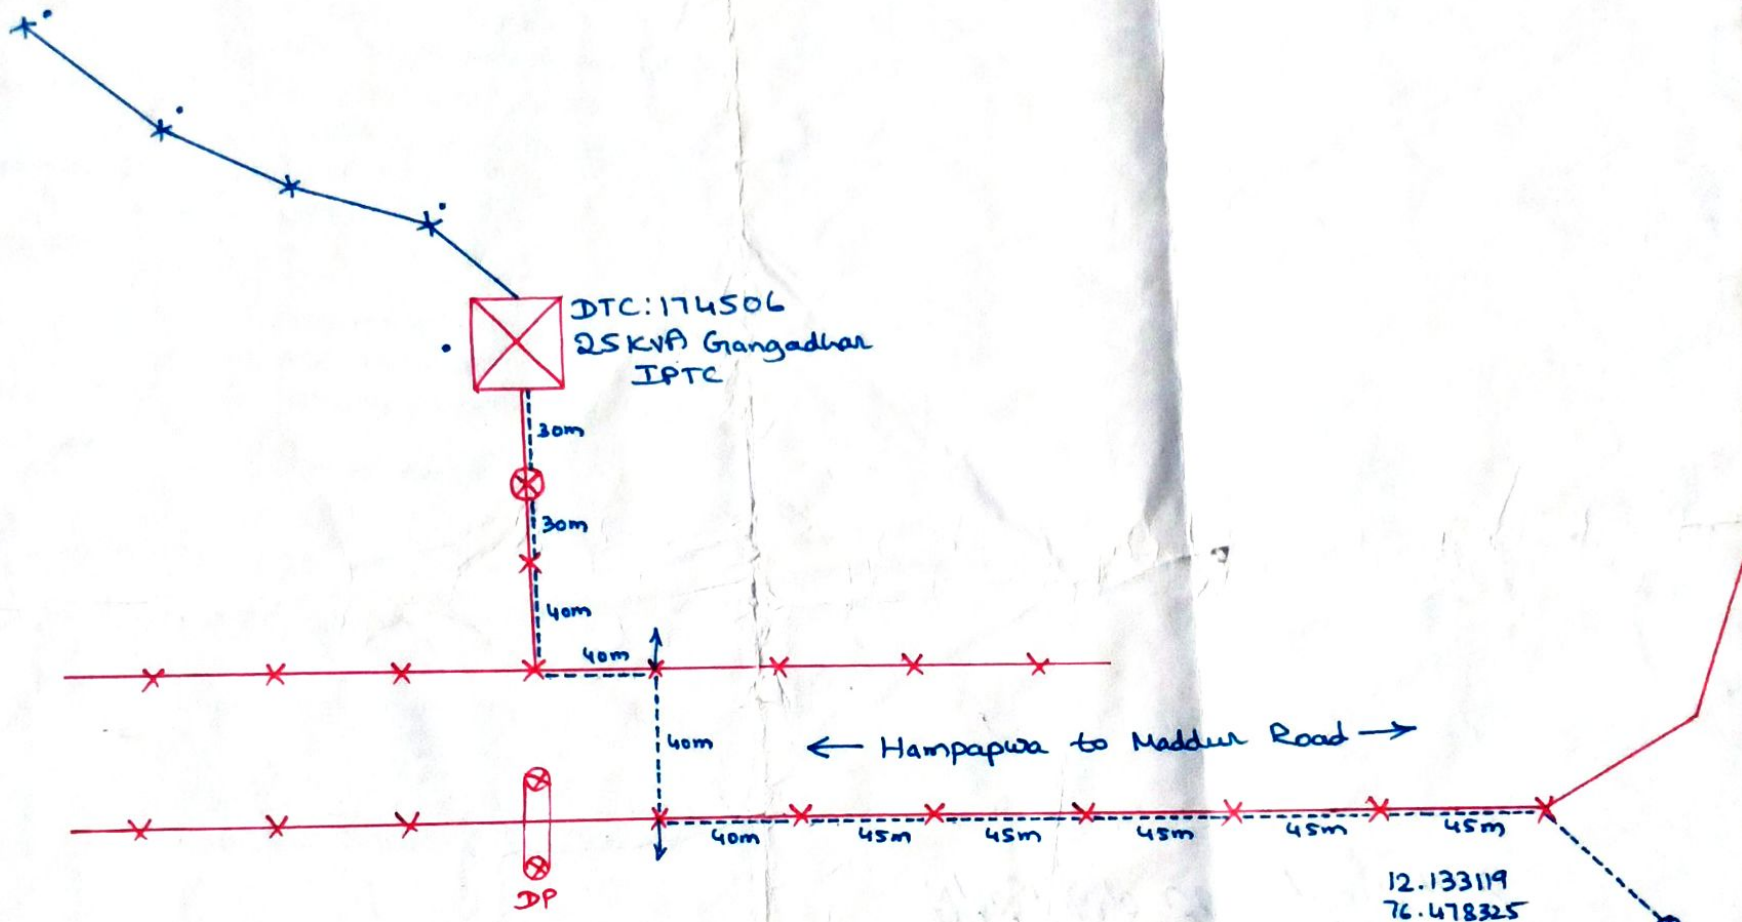 DTC:174506
25KVA Gangadhar
IPTC
30m
30m
40m
40m
40m
← Hampapura to Maddur Road →
40m
45m
45m
45m
45m
45m
DP
12.133119
76.478325